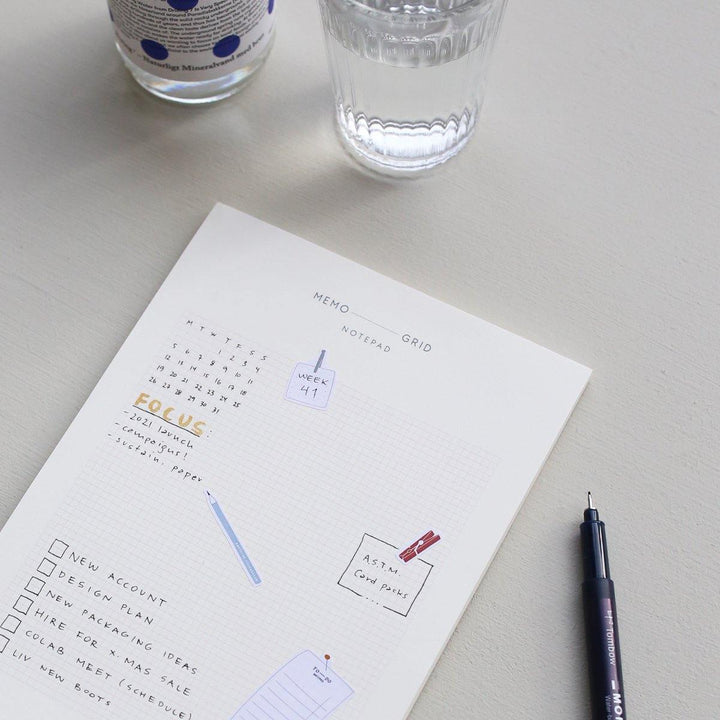 Naturligt Mineralvand med brus
MEMO GRID
NOTEPAD
M T W T F S S
1 2 3 4
5 6 7 8 9 10 11
12 13 14 15 16 17 18
19 20 21 22 23 24 25
26 27 28 29 30 31
WEEK
41
FOCUS:
- 2021 launch
- campaigns!
- sustain. paper
A.S.T.M.
Card packs
....
NEW ACCOUNT
DESIGN PLAN
NEW PACKAGING IDEAS
HIRE FOR X.MAS SALE
COLAB MEET (SCHEDULE)
LIV NEW BOOTS
TO-DO
Tombow
MO